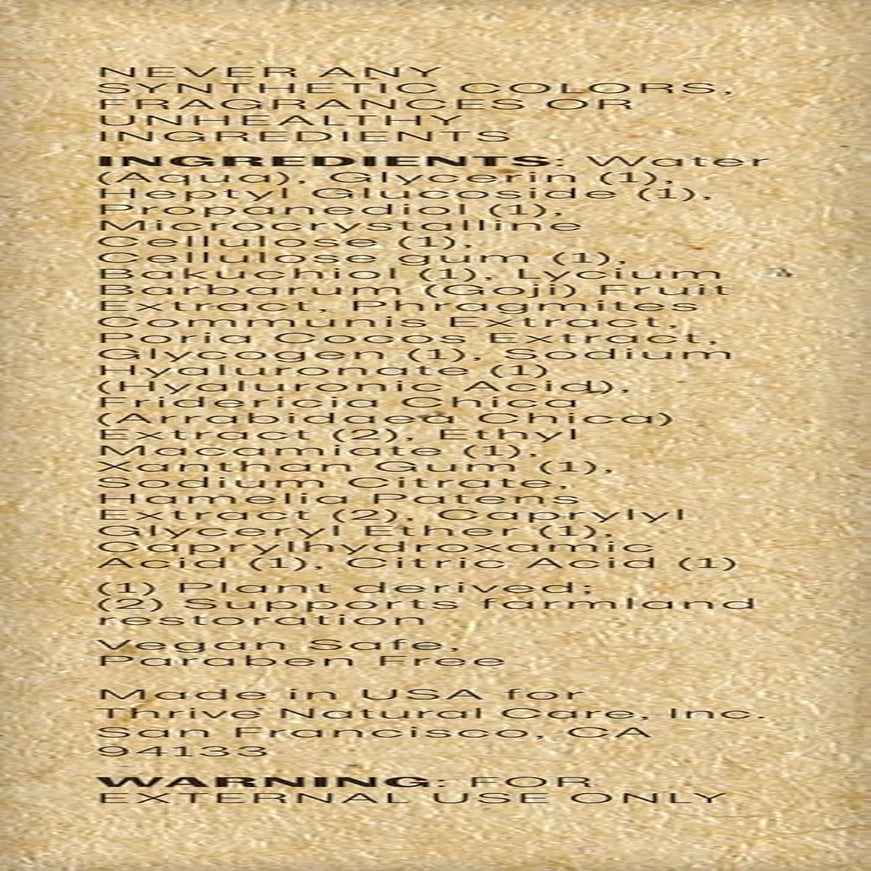 NEVER ANY
SYNTHETIC COLORS,
FRAGRANCES OR
UNHEALTHY
INGREDIENTS
INGREDIENTS: Water
(Aqua), Glycerin (1),
Heptyl Glucoside (1),
Propanediol (1),
Microcrystalline
Cellulose (1),
Cellulose gum (1),
Bakuchiol (1), Lycium
Barbarum (Goji) Fruit
Extract, Phragmites
Communis Extract,
Poria Cocos Extract,
Glycogen (1), Sodium
Hyaluronate (1)
(Hyaluronic Acid),
Fridericia Chica
(Arrabidaea Chica)
Extract (2), Ethyl
Macamiate (1),
Xanthan Gum (1),
Sodium Citrate,
Hamelia Patens
Extract (2), Caprylyl
Glyceryl Ether (1),
Caprylhydroxamic
Acid (1), Citric Acid (1)
(1) Plant derived;
(2) Supports farmland
restoration
Vegan Safe,
Paraben Free
Made in USA for
Thrive Natural Care, Inc.
San Francisco, CA
94133
WARNING: FOR
EXTERNAL USE ONLY